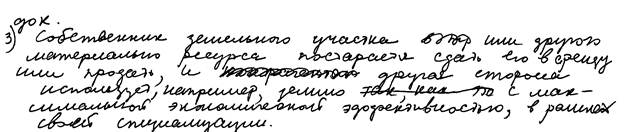 док.
3) Собственник земельного участка или другого
материального ресурса постарается сдать его в аренду
или продать, и другая сторона
использует, например, землю так как это с мак-
симальной экономической эффективностью, в рамках
своей специализации.